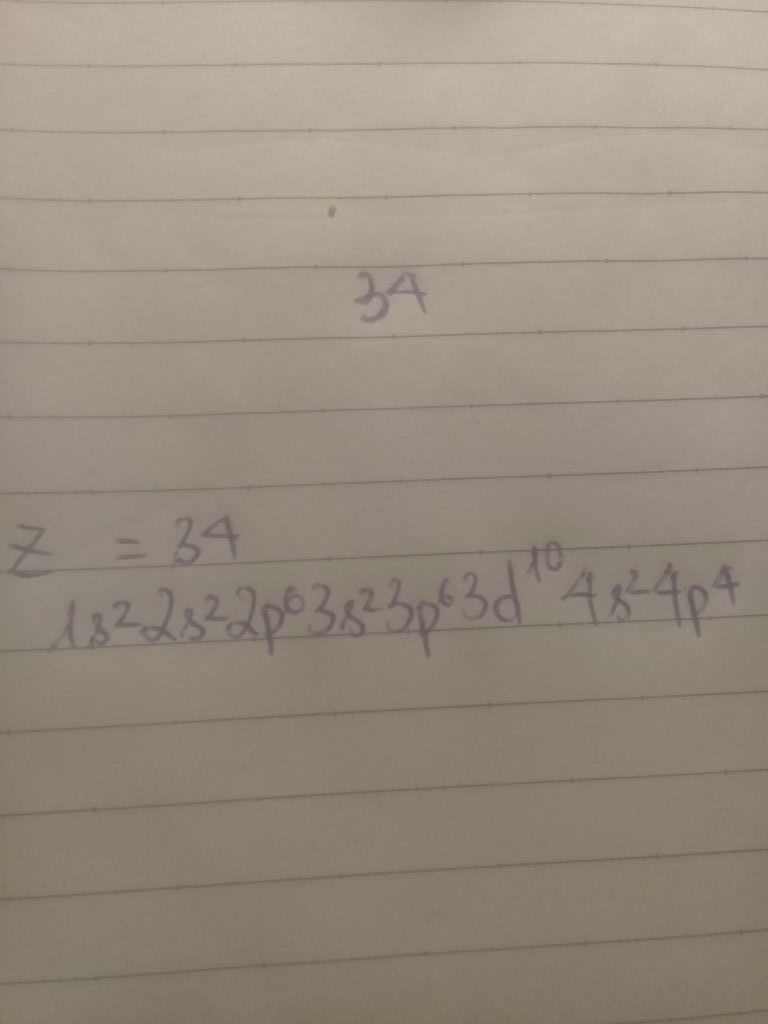 34
Z = 34
1s²2s²2p⁶3s²3p⁶3d¹⁰4s²4p⁴